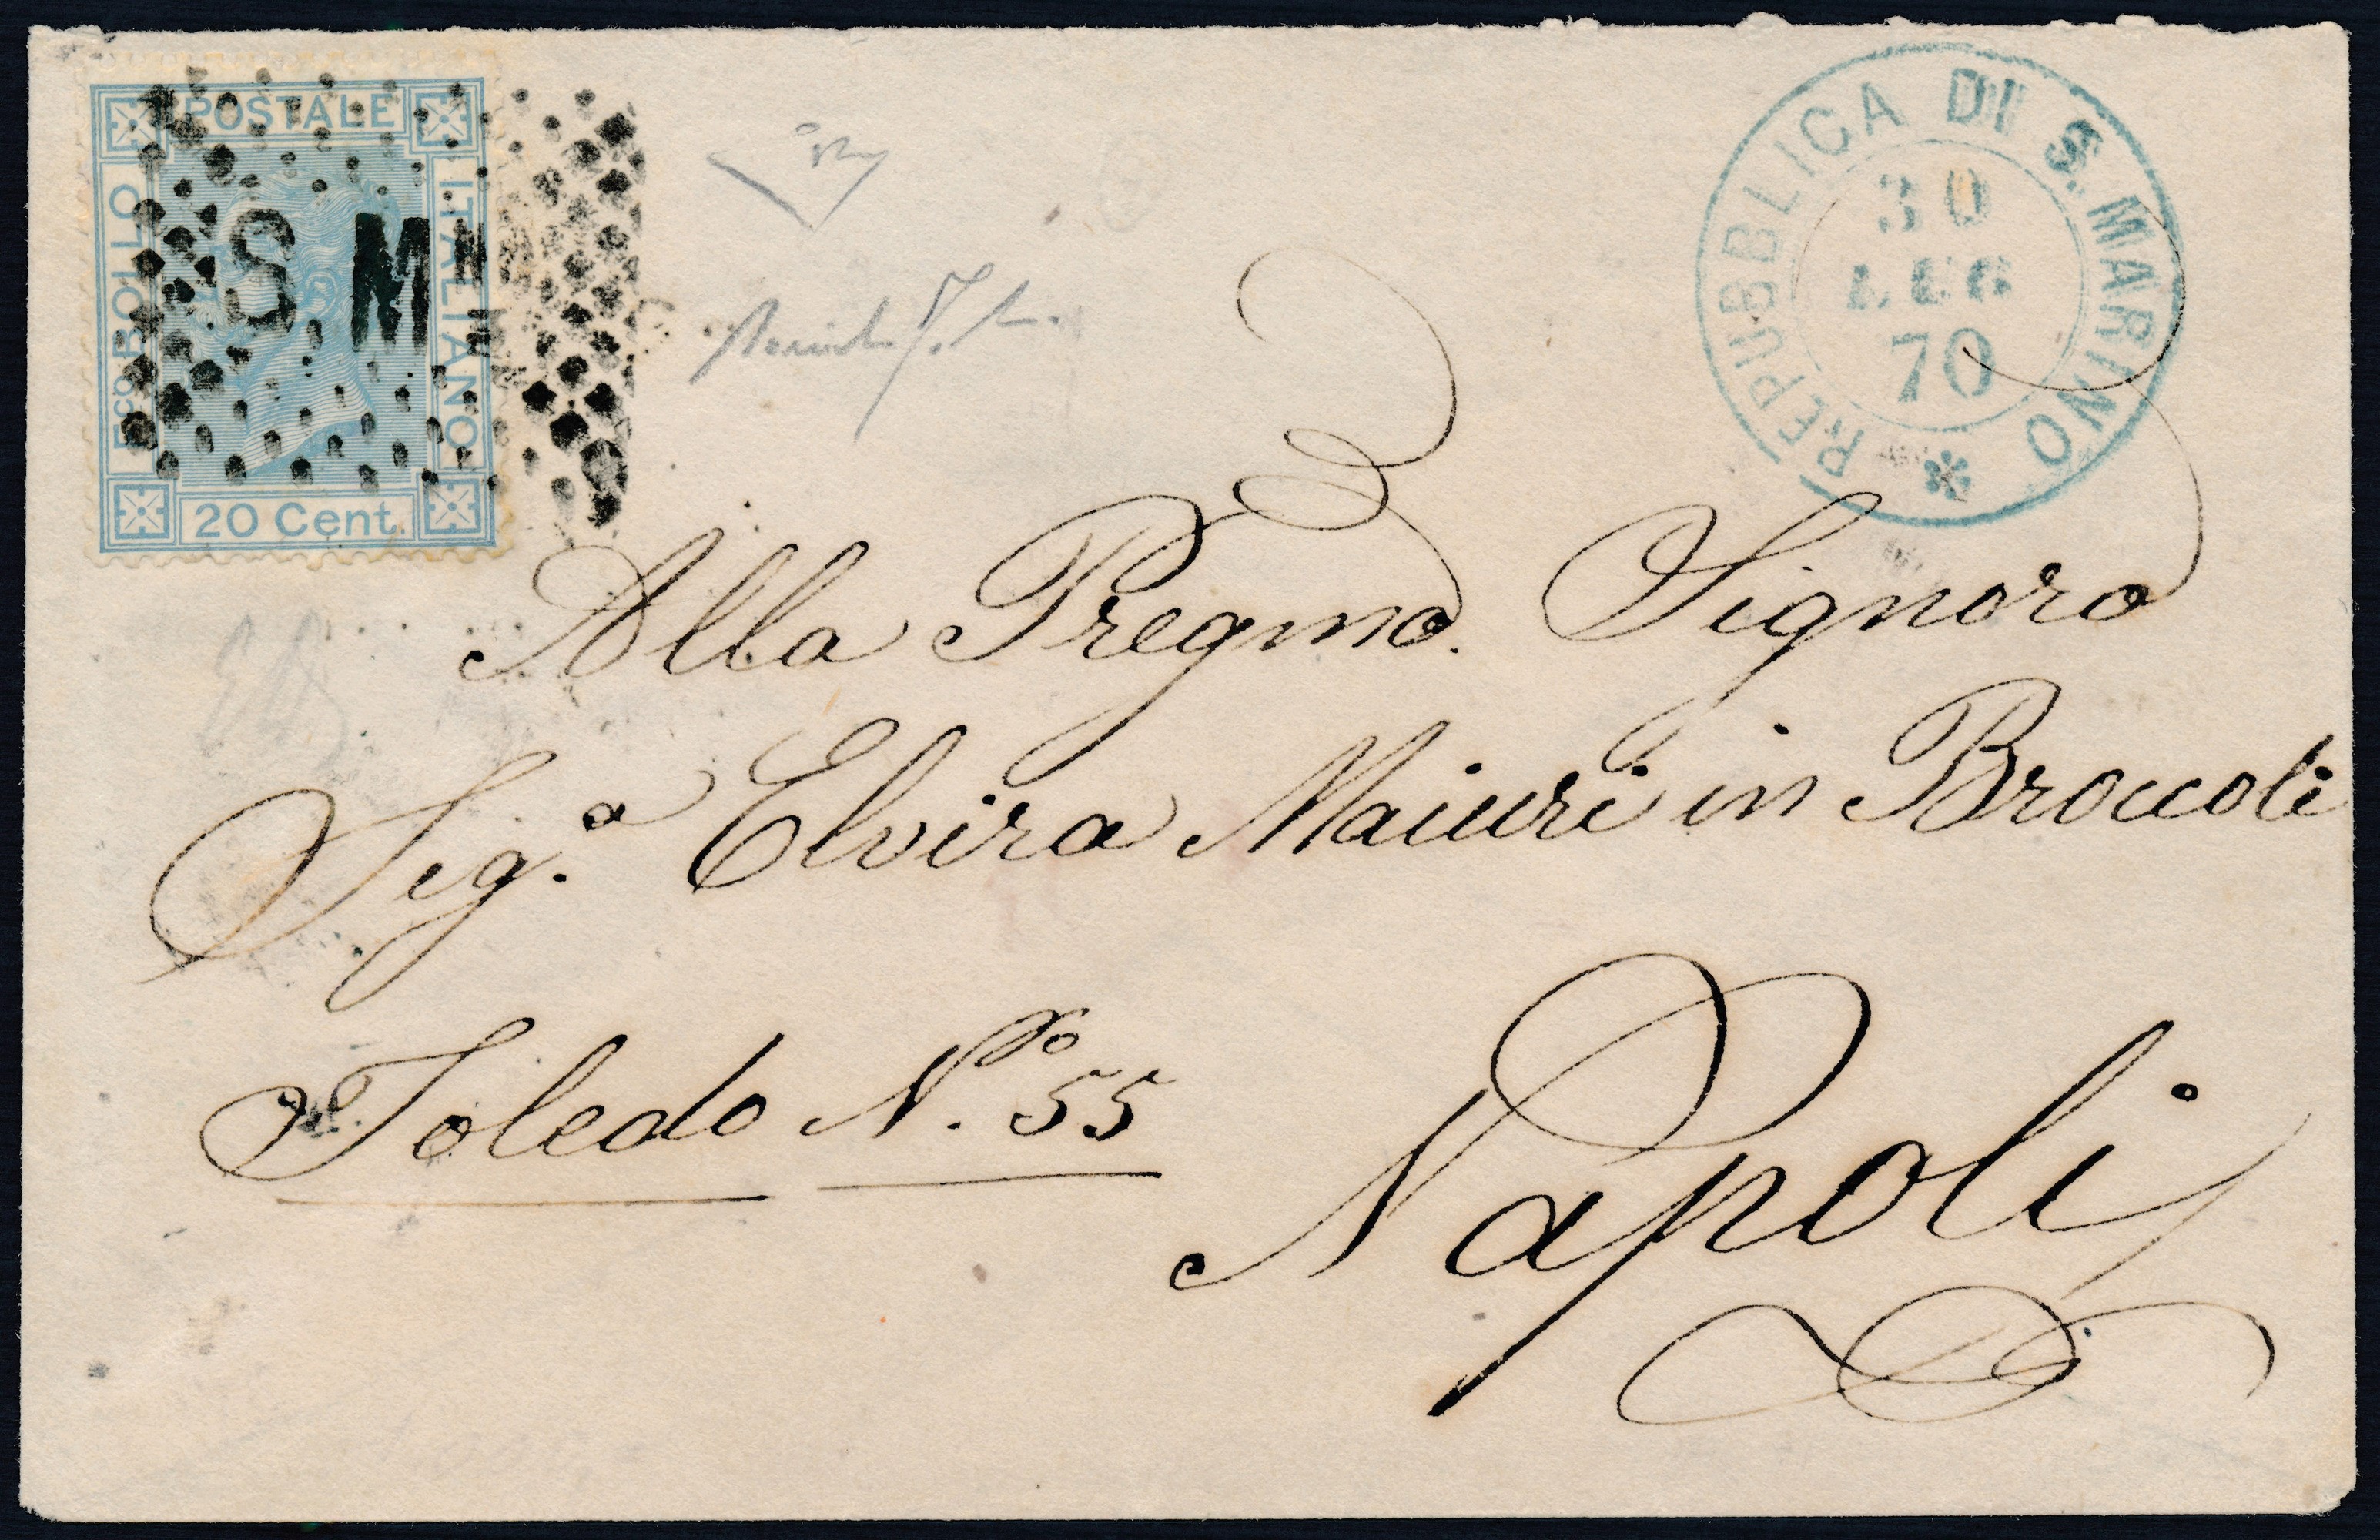 POSTALE
Fco BOLLO
ITALIANO
S M
20 Cent.
REPUBBLICA DI S. MARINO
30
LUG
70
Alla Pregma. Signora
Sig.a Elvira Maiuri in Broccoli
Toledo No. 55
Napoli